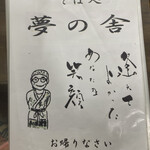 そば処
夢の舎
逢えて
よかった
あなたの
笑顔
お帰りなさい